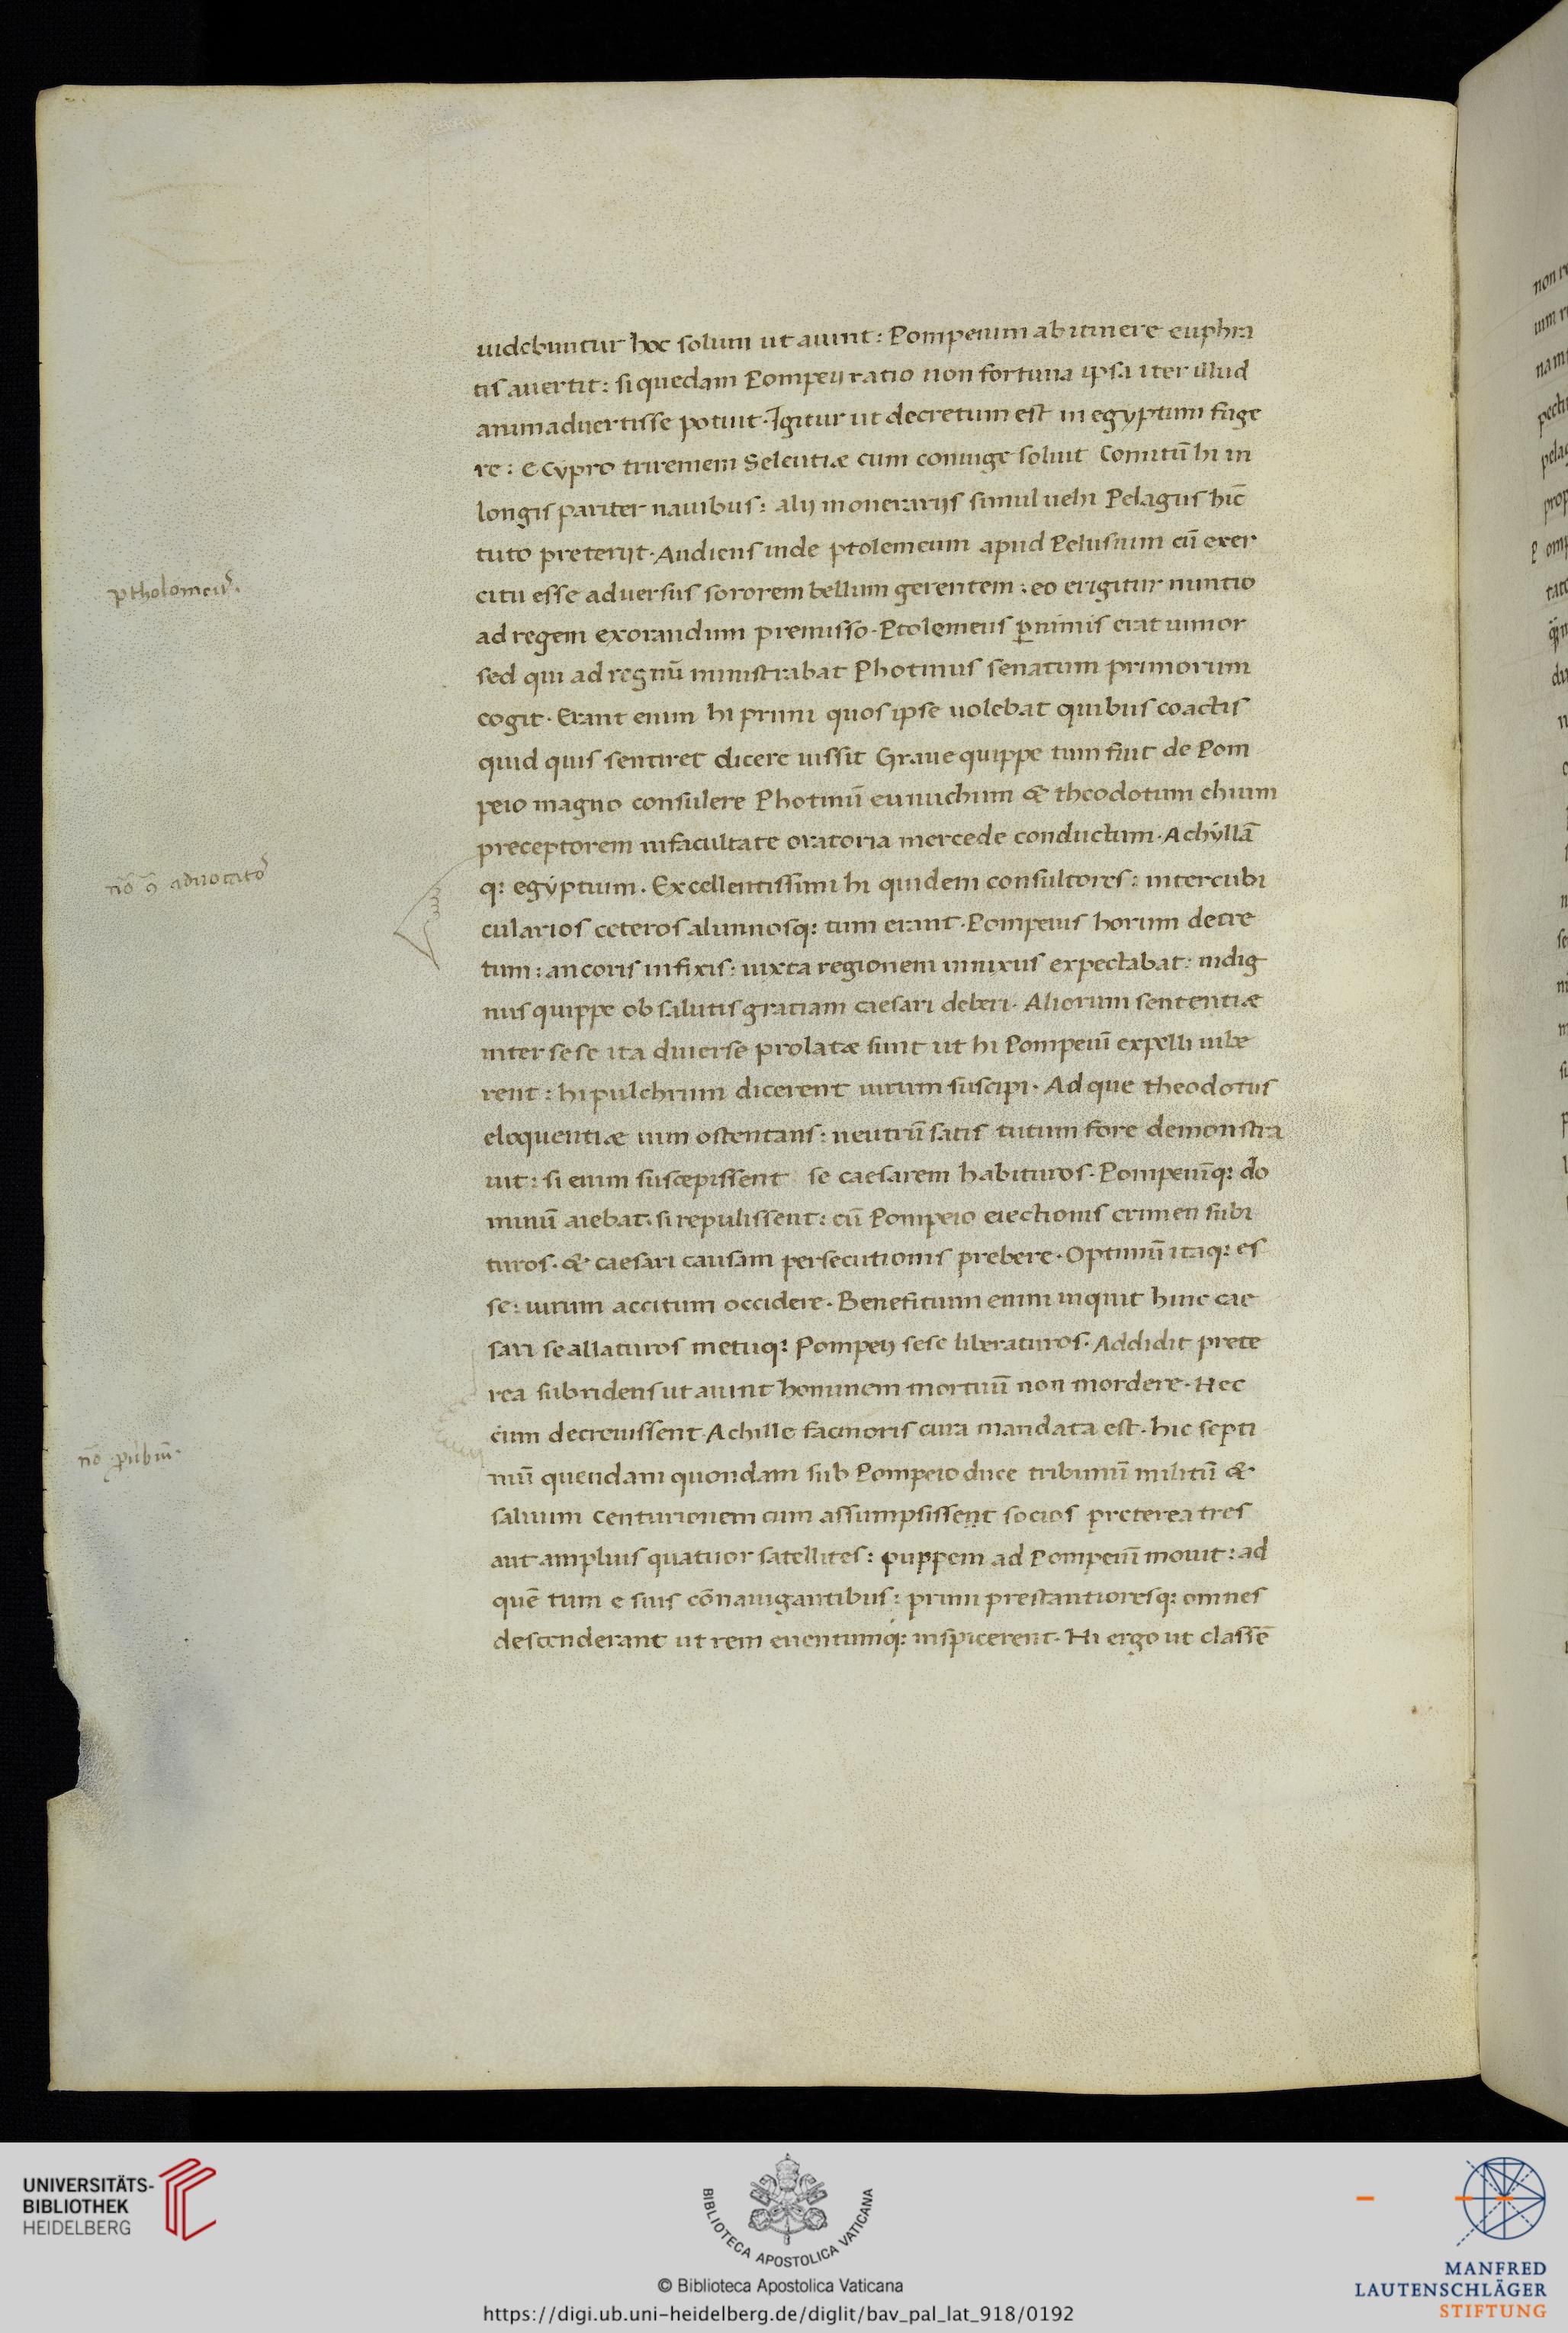 uidebuntur hoc solum ut aiunt: Pompeium ab itinere euphra
tis auertit: si quedam Pompeij ratio non fortuna ipsa iter illud
animaduertisse potuit. Igitur ut decretum est in egyptum fuge
re: e Cypro triremem Seleutiæ cum coniuge soluit Comitū hi in
longis pariter nauibus: alij in onerarijs simul uehi Pelagus hīc
tuto preterijt. Audiens inde ptolemeum apud Pelusium cū exer
ptholomeus.
citu esse aduersus sororem bellum gerentem: eo erigitur nuntio
ad regem exorandum premisso. Ptolemeus ꝑnimis erat iunior
sed qui ad regnū ministrabat Photinus senatum primorum
cogit. Erant enim hi primi quos ipse uolebat quibus coactis
quid quis sentiret dicere iussit Graue quippe tum fuit de Pom
peio magno consulere Photinū eunuchum & theodotum chium
preceptorem in facultate oratoria mercede conductum. Achyllā
nō ꝯ aduocato
q: egyptium. Excellentissimi hi quidem consultores: inter cubi
cularios ceteros alumnosq: tum erant. Pompeius horum decre
tum: ancoris infixis: iuxta regionem innixus expectabat: indig
nus quippe ob salutis gratiam caesari deberi. Aliorum sententiæ
inter se se ita diuerse prolatæ sunt ut hi Pompeiū expelli iube
rent: hi pulchrum dicerent uirum suscipi. Ad que theodotus
eloquentiæ uim ostentans: neutrū satis tutum fore demonstra
uit: si enim suscepissent se caesarem habituros. Pompeiūq: do
minū aiebat. si repulissent: cū Pompeio eiectionis crimen subi
turos. & caesari causam persecutionis prebere. Optimū itaq: es
se: uirum accitum occidere. Benefitium enim inquit hinc cae
sari se allaturos metuq: Pompeij sese liberaturos. Addidit prete
rea subridens ut aiunt hominem mortuū non mordere. Hec
cum decreuissent. Achille facinoris cura mandata est. hic septi
nō ꝓubiū.
miū quendam quondam sub Pompeio duce tribunū militū &
saluium centurionem cum assumpsissent socios preterea tres
aut amplius quatuor satellites: puppem ad Pompeiū mouit: ad
quē tum e suis cōnauigantibus: primi prestantioresq: omnes
descenderant ut rem euentumq: inspicerent. Hi ergo ut classē
UNIVERSITÄTS-
BIBLIOTHEK
HEIDELBERG
BIBLIOTECA APOSTOLICA VATICANA
© Biblioteca Apostolica Vaticana
https://digi.ub.uni-heidelberg.de/diglit/bav_pal_lat_918/0192
MANFRED
LAUTENSCHLÄGER
STIFTUNG